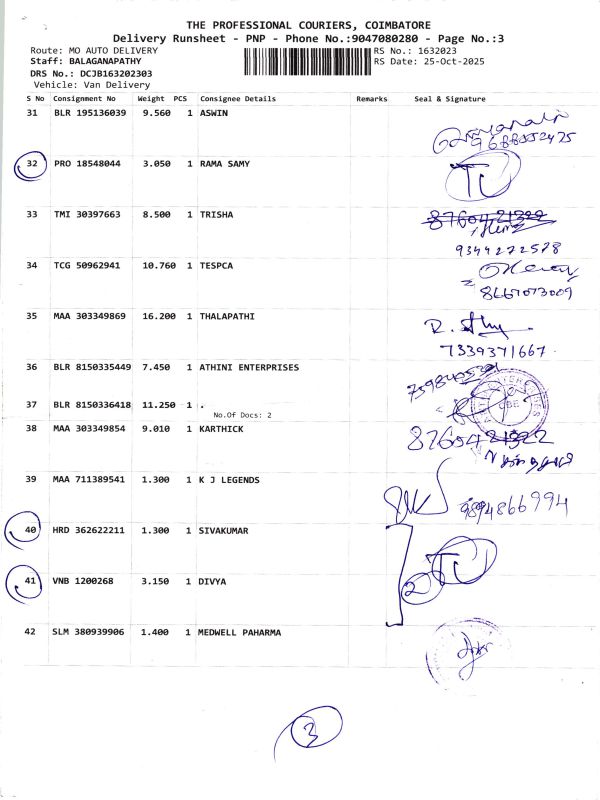 THE PROFESSIONAL COURIERS, COIMBATORE
Delivery Runsheet - PNP - Phone No.:9047080280 - Page No.:3
Route: MO AUTO DELIVERY RS No.: 1632023
Staff: BALAGANAPATHY RS Date: 25-Oct-2025
DRS No.: DCJB163202303
Vehicle: Van Delivery
S No Consignment No Weight PCS Consignee Details Remarks Seal & Signature
31 BLR 195136039 9.560 1 ASWIN
9688552475
32 PRO 18548044 3.050 1 RAMA SAMY
33 TMI 30397663 8.500 1 TRISHA
9344272578
34 TCG 50962941 10.760 1 TESPCA
8667073009
35 MAA 303349869 16.200 1 THALAPATHI
7339371667
36 BLR 8150335449 7.450 1 ATHINI ENTERPRISES
37 BLR 8150336418 11.250 1 .
No.Of Docs: 2
38 MAA 303349854 9.010 1 KARTHICK
39 MAA 711389541 1.300 1 K J LEGENDS
9894866994
40 HRD 362622211 1.300 1 SIVAKUMAR
41 VNB 1200268 3.150 1 DIVYA
2
42 SLM 380939906 1.400 1 MEDWELL PAHARMA
3